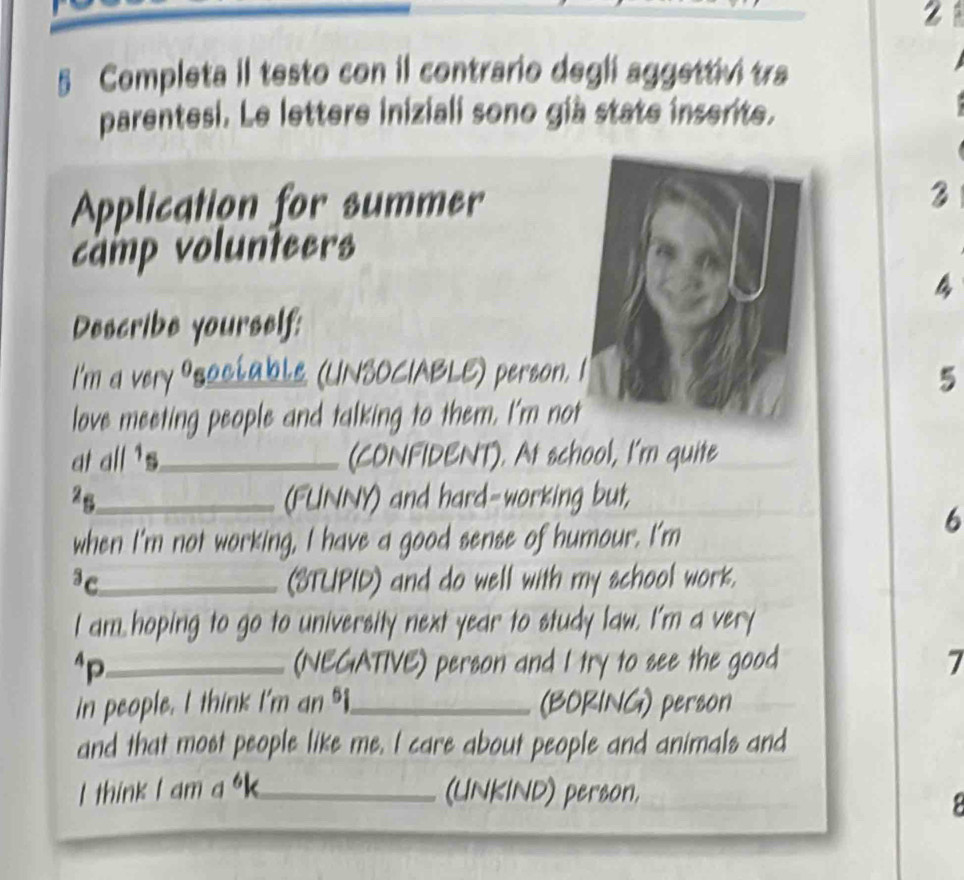 2
5 Completa il testo con il contrario degli aggettivi tra
parentesi. Le lettere iniziali sono già state inserite.
Application for summer
camp volunteers
Describe yourself:
I'm a very ⁰sociable (UNSOCIABLE) person. I
love meeting people and talking to them, I'm not
at all ¹s____________ (CONFIDENT). At school, I'm quite
²s____________ (FUNNY) and hard-working but,
when I'm not working, I have a good sense of humour. I'm
³c____________ (STUPID) and do well with my school work.
I am hoping to go to university next year to study law. I'm a very
⁴p____________ (NEGATIVE) person and I try to see the good
in people. I think I'm an ⁵i____________ (BORING) person
and that most people like me. I care about people and animals and
I think I am a ⁶k____________ (UNKIND) person.
3
4
5
6
7
8